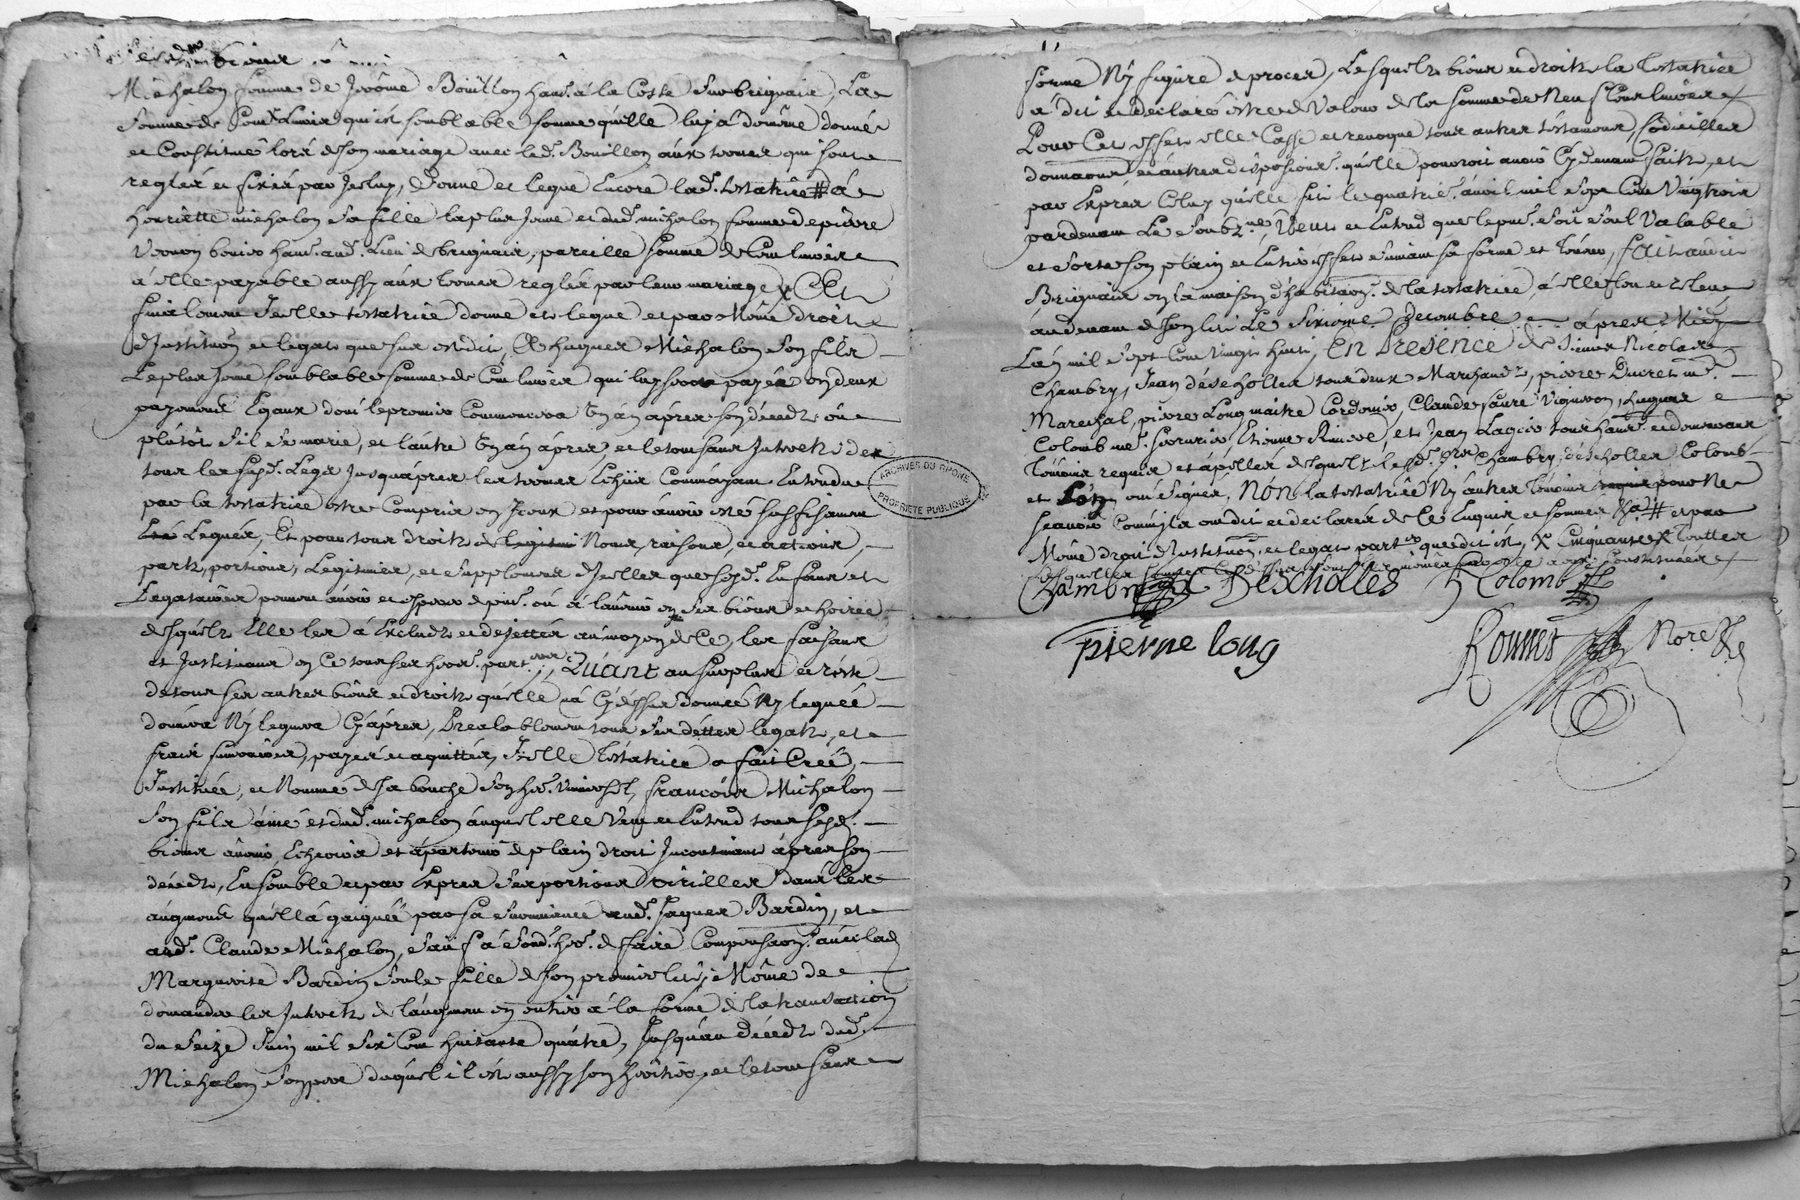 Michalon femme de Jerôme Bouillon hant. a la Coste sur brignais, La
somme de Cent Livres qui est semblable somme qu'elle luy á donnée
et Constituée lors de son mariage avec led. Bouillon aux termes qui sont
reglés et fixés par Jceluy, Donne et legue Encore lad. testatrice # à
henriette michalon sa fille la plus Jeune et dud. michalon femme de pierre
hant. aud. Lieu de brignais, pareille somme de Cent livres
á elle payable aussy aux termes reglés par leur mariage X Et
finalement Jcelle testatrice donne et legue et par Même droit
d'Jnstituon et legat que sus est dit, A hugues Michalon son fils
Le plus Jeune semblable somme de Cent livres qui luy sera payée en deux
payements Egaux dont le premier Commencera Un án áprés son décedz ou
plûtôt s'il se marie, et l'autre Un án áprés, et le tout sans Jnteretz des
tous les susd. Legs Jusqu'áprés les termes Echûs Comme ayant Entendue
par la testatrice estre Compris en Jceux et pour ávoir esté suffisament
Legués, Et pour tous droits de Noms, raisons, et actions,
parts, portions, Legitimes, et supplement d'Jcelles que sesd. Enfans et
Legataires peuvent ávoir et esperer de pnt. ou á l'avenir en ses biens et hoirie
desquels Elle les á Excludz et dejettés au moyen de Ce, les faisant
et Jnstituant en Ce tous ses heors. part. Quant au surplus et reste
de tous ses autres biens et droits qu'elle n'á Cydessus donnée Ny leguée
donnera Ny leguera Cyáprés, Prealablement tous ses dettes legats, et
frais funeraires, payés et aquittés, Jcelle Testatrice a fait Creé,
Jnstituée, et Nommé de sa bouche son her. Universel, françois Michalon
son fils ainé et dud. michalon auquel elle Veut et Entend tous sesd.
biens ávoir, Echeoir et ápartenir de plain droit Jncontinant áprés son
décedz, Ensemble et par Exprés ses portions virilles dans les
augments qu'ell'á gaignée par sa survivance aud. Jaques Bardin, et
aud. Claude Michalon, sauf á sond. her. de faire Compensaon. avec lad.
Marguerite Bardin seule fille de son premier lit, Même de
demander les Jnteretz de l'augment en entier á la forme de la transaction
du seize Juin mil six Cent huitante quatre, Jusqu'au décedz dud.
Michalon son pere duquel il est aussy son heritier, et le tout sans
forme Ny figure de procés, Lesquels biens et droits la Testatrice
a dit et declaré estre de Valeur de la somme de Neuf Cent livres
Pour Cet effet elle Casse et revoque tous autres testamens, Codicilles
donnaons et autres disposions. qu'elle pourroit avoir Cydevant faits, et
par Exprés Celuy qu'elle fit le quatrie. avril mil sept Cent Vingt trois
pardevant Le soubzne. Veut et Entend que le pnt. soit seul Valable
et sorte son plain et Entier effet suivant sa forme et teneur, fait audit
Brignais en la maison d'habitaon. de la testatrice, á elle leu et releu
au devant de son lit Le sixieme Decembre áprés Midy
L'án mil sept Cent vingt huit, En Presence de sieurs Nicolas
Chambry, Jean déscholles tous deux Marchands, pierre Ducret me.
Mareschal, pierre Long maitre Cordonnier, Claude faure Vigneron, hugues
Colomb me. serrurier Etienne et Jean tous hans. et demeurans
Temoins requis et ápellés desquels lesd. srs. Chambry, déscholles Colomb
et Long ont signés, Non la testatrice Ny autres temoins pour Ne
sçavoir Comm'ils ont dit et declarés de Ce Enquis et sommés # et par
Même droit d'Jnstituon. et legat part. que dit est, X Cinquante X toutes
Chambry Descholles H Colomb
pierre long
Nore. Rl.
ARCHIVES DU RHONE
PROPRIETE PUBLIQUE